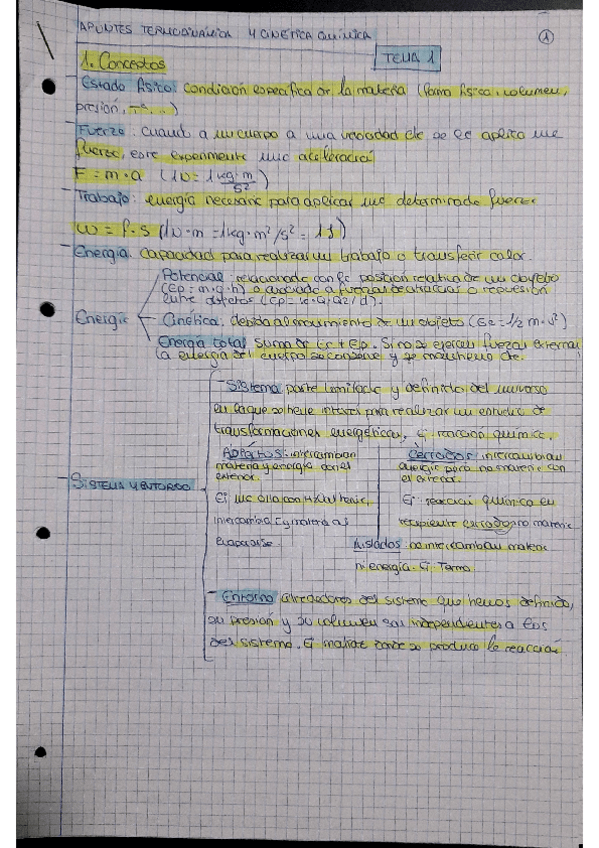 APUNTES TERMODINÁMICA Y CINÉTICA QUÍMICA
1
TEMA 1
1. Conceptos
Estado físico: condición específica de la materia (forma física, volumen,
presión, Tª...)
Fuerza: cuando a un cuerpo a una velocidad cte se le aplica una
fuerza, este experimenta una aceleración
F = m·a (1N = 1kg·m/s²)
Trabajo: energía necesaria para aplicar una determinada fuerza
W = F·s (1N·m = 1kg·m²/s² = 1J)
Energía. Capacidad para realizar un trabajo o transferir calor.
Potencial: relacionada con la posición relativa de un objeto
(Ep = m·g·h) o asociada a fuerzas de atracción o repulsión
entre objetos (Ep = k·Q1·Q2/d).
Energía
Cinética: debida al movimiento de un objeto (Ec = 1/2 m·v²)
Energía total suma de Ec + Ep. Si no se ejercen fuerzas externas
la energía del cuerpo se conserva y se mantiene cte.
SISTEMA Y ENTORNO
- Sistema parte limitada y definida del universo
en la que se tiene interés para realizar un estudio de
transformaciones energéticas, Ej reacción química
Abiertos: intercambian
materia y energía con el
exterior.
Ej una olla con agua hirviendo,
intercambia E y materia al
evaporarse
Cerrados: intercambian
energía pero no materia con
el exterior.
Ej: reacción química en
recipiente cerrado no materia
Aislados: no intercambian materia
ni energía. Ej: Termo
- Entorno alrededores del sistema que hemos definido,
su presión y su volumen son independientes a los
del sistema. Ej matraz donde se produce la reacción